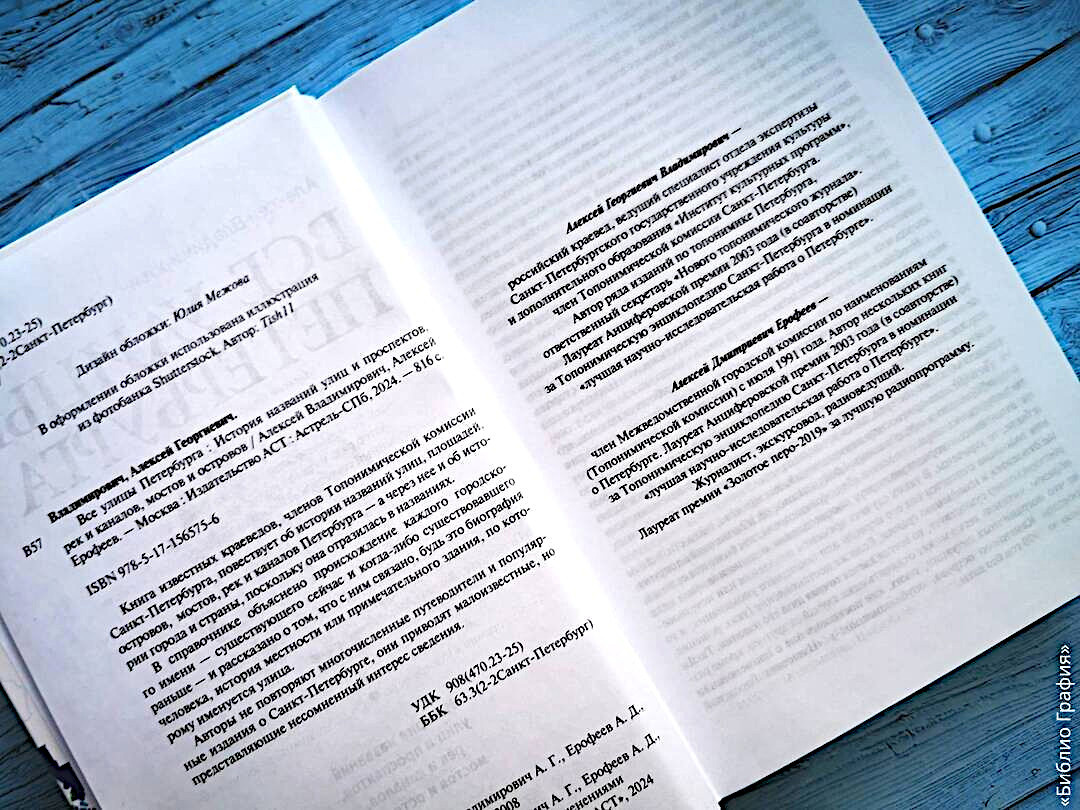 0.23-25)
2-2Санкт-Петербург)
Дизайн обложки: Юлия Межова
В оформлении обложки использована иллюстрация
из фотобанка Shutterstock. Автор: Tish11
Владимирович, Алексей Георгиевич.
В57
Все улицы Петербурга : История названий улиц и проспектов,
рек и каналов, мостов и островов / Алексей Владимирович, Алексей
Ерофеев. — Москва : Издательство АСТ : Астрель-СПб, 2024. — 816 с.
ISBN 978-5-17-156575-6
Книга известных краеведов, членов Топонимической комиссии
Санкт-Петербурга, повествует об истории названий улиц, площадей,
островов, мостов, рек и каналов Петербурга — а через нее и об исто-
рии города и страны, поскольку она отразилась в названиях.
В справочнике объяснено происхождение каждого городско-
го имени — существующего сейчас и когда-либо существовавшего
раньше — и рассказано о том, что с ним связано, будь это биография
человека, история местности или примечательного здания, по кото-
рому именуется улица.
Авторы не повторяют многочисленные путеводители и популяр-
ные издания о Санкт-Петербурге, они приводят малоизвестные, но
представляющие несомненный интерес сведения.
УДК 908(470.23-25)
ББК 63.3(2-2Санкт-Петербург)
ладимирович А. Г., Ерофеев А. Д.,
2008
ович А. Г., Ерофеев А. Д.,
менениями
АСТ», 2024
Алексей Георгиевич Владимирович —
российский краевед, ведущий специалист отдела экспертизы
Санкт-Петербургского государственного учреждения культуры
и дополнительного образования «Институт культурных программ»,
член Топонимической комиссии Санкт-Петербурга.
Автор ряда изданий по топонимике Петербурга,
ответственный секретарь «Нового топонимического журнала».
Лауреат Анциферовской премии 2003 года (в соавторстве)
за Топонимическую энциклопедию Санкт-Петербурга в номинации
«лучшая научно-исследовательская работа о Петербурге».
Алексей Дмитриевич Ерофеев —
член Межведомственной городской комиссии по наименованиям
(Топонимической комиссии) с июля 1991 года. Автор нескольких книг
о Петербурге. Лауреат Анциферовской премии 2003 года (в соавторстве)
за Топонимическую энциклопедию Санкт-Петербурга в номинации
«лучшая научно-исследовательская работа о Петербурге».
Журналист, экскурсовод, радиоведущий.
Лауреат премии «Золотое перо-2019» за лучшую радиопрограмму.
«Библио Графия»